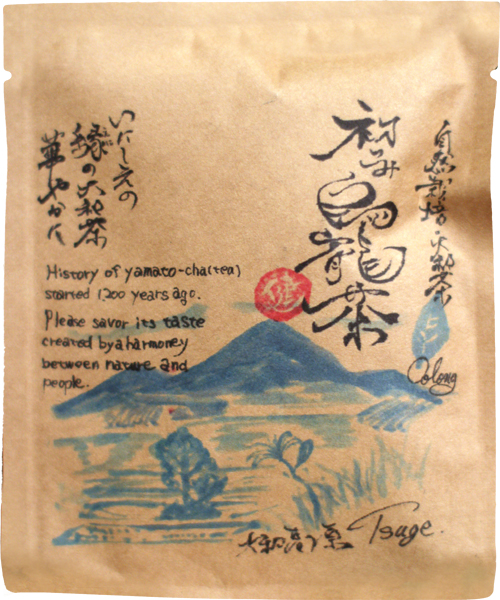 自然栽培・大和茶
初つみ
烏龍茶
健
Oolong
いにしえの
縁の大和茶
華やかに
History of yamato-cha(tea)
started 1200 years ago.
Please savor its taste
created by a harmoney
between nature and
people.
大和高原 Tsuge.